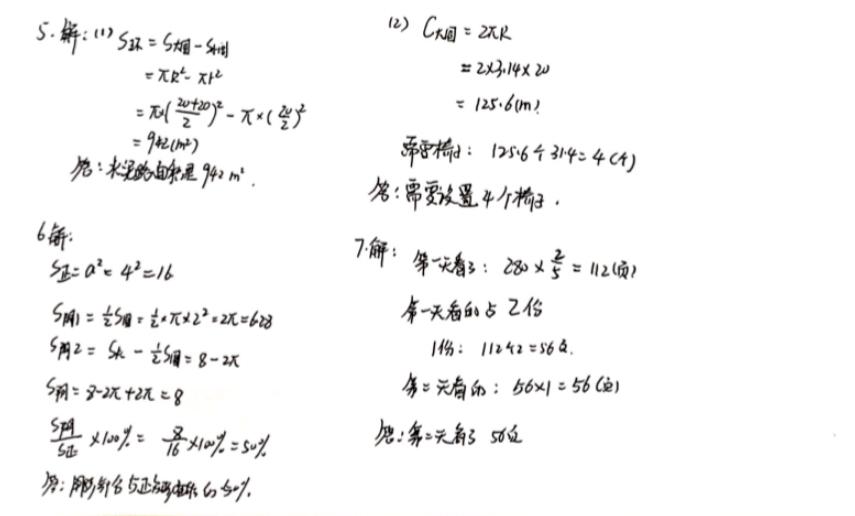 5. 解：(1) S环 = S大圆 - S小圆
= πR² - πr²
= π×(\frac{20+20}{2})² - π×(\frac{20}{2})²
= 942(m²)
答：水泥路面积是 942 m².
(2) C大圆 = 2πR
= 2×3.14×20
= 125.6(m)
需要椅子：125.6÷31.4=4(个)
答：需要设置4个椅子.
6 解：
S正 = a² = 4² = 16
S阴1 = ½S圆 = ½×π×2² = 2π = 6.28
S阴2 = S长 - ½S圆 = 8-2π
S阴 = 8-2π+2π = 8
\frac{S阴}{S正} ×100% = \frac{8}{16}×100% = 50%
答：阴影部分占正方形面积的50%.
7.解：第一天看了：280 × \frac{2}{5} = 112(页)
第一天看的占 2份
1份：112÷2=56页.
第二天看的：56×1=56(页)
答：第二天看了 56页